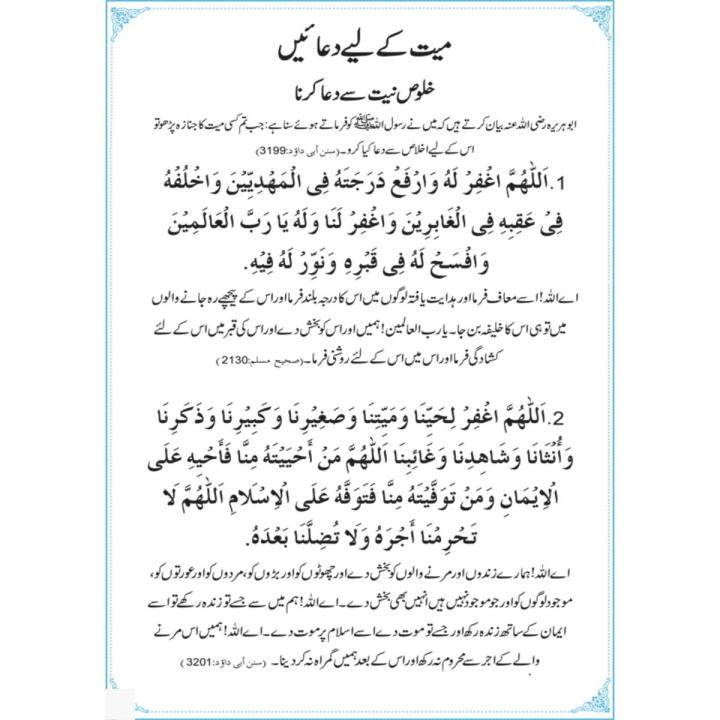 میت کے لیے دعائیں
خلوص نیت سے دعا کرنا
ابو ہریرہ رضی اللہ عنہ بیان کرتے ہیں کہ میں نے رسول اللہ ﷺ کو فرماتے ہوئے سنا ہے: جب تم کسی میت کا جنازہ پڑھو تو
اس کے لیے اخلاص سے دعا کیا کرو۔ (سنن أبی داؤد:3199)
1. اَللّٰهُمَّ اغْفِرْ لَهُ وَارْفَعْ دَرَجَتَهُ فِی الْمَهْدِیِّیْنَ وَاخْلُفْهُ
فِیْ عَقِبِهِ فِی الْغَابِرِیْنَ وَاغْفِرْ لَنَا وَلَهُ یَا رَبَّ الْعَالَمِیْنَ
وَافْسَحْ لَهُ فِی قَبْرِهِ وَنَوِّرْ لَهُ فِیْهِ.
اے اللہ! اسے معاف فرما اور ہدایت یافتہ لوگوں میں اس کا درجہ بلند فرما اور اس کے پیچھے رہ جانے والوں
میں تو ہی اس کا خلیفہ بن جا۔ یا رب العالمین! ہمیں اور اس کو بخش دے اور اس کی قبر میں اس کے لئے
کشادگی فرما اور اس میں اس کے لئے روشنی فرما۔ (صحیح مسلم:2130)
2. اَللّٰهُمَّ اغْفِرْ لِحَیِّنَا وَمَیِّتِنَا وَصَغِیْرِنَا وَکَبِیْرِنَا وَذَکَرِنَا
وَأُنْثَانَا وَشَاهِدِنَا وَغَائِبِنَا اَللّٰهُمَّ مَنْ أَحْیَیْتَهُ مِنَّا فَأَحْیِهِ عَلَی
الْاِیْمَانِ وَمَنْ تَوَفَّیْتَهُ مِنَّا فَتَوَفَّهُ عَلَی الْاِسْلَامِ اَللّٰهُمَّ لَا
تَحْرِمْنَا أَجْرَهُ وَلَا تُضِلَّنَا بَعْدَهُ.
اے اللہ! ہمارے زندوں اور مرنے والوں کو بخش دے اور چھوٹوں کو اور بڑوں کو، مردوں کو اور عورتوں کو،
موجود لوگوں کو اور جو موجود نہیں ہیں انہیں بھی بخش دے۔ اے اللہ! ہم میں سے جسے تو زندہ رکھے تو اسے
ایمان کے ساتھ زندہ رکھ اور جسے تو موت دے اسے اسلام پر موت دے۔ اے اللہ! ہمیں اس مرنے
والے کے اجر سے محروم نہ رکھ اور اس کے بعد ہمیں گمراہ نہ کر دینا۔ (سنن أبی داؤد:3201)